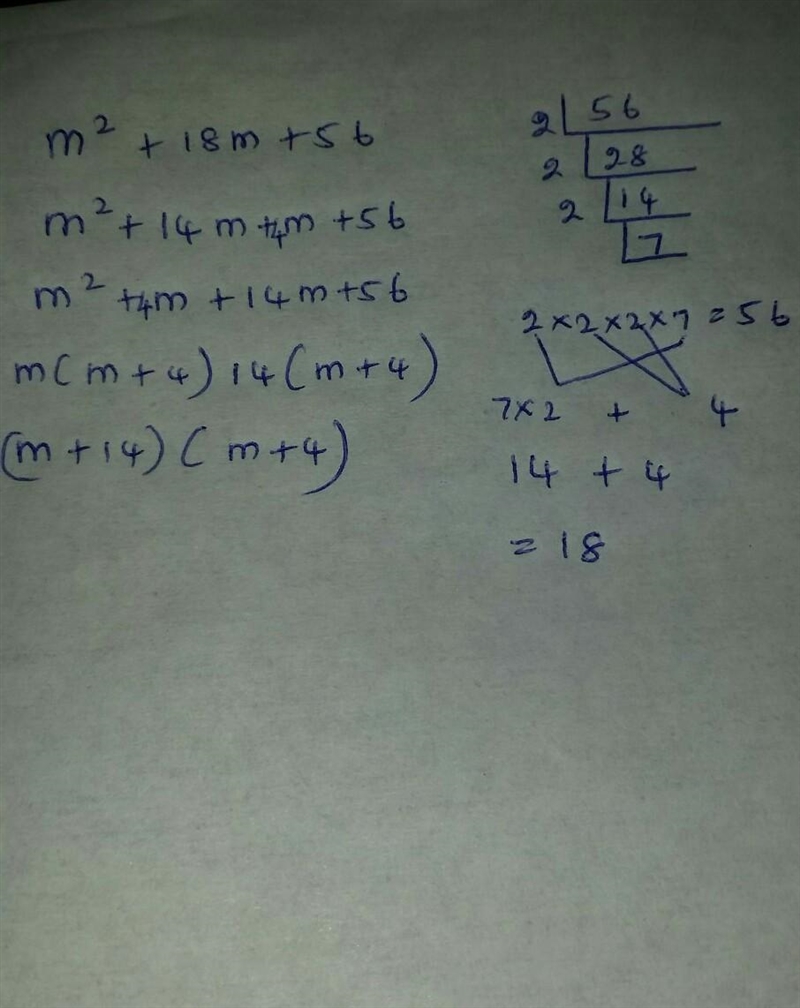 m² + 18m + 56
m² + 14m + 4m + 56
m² + 4m + 14m + 56
m(m + 4) 14(m + 4)
(m + 14)(m + 4)
2 | 56
2 | 28
2 | 14
| 7
2 × 2 × 2 × 7 = 56
7 × 2 + 4
14 + 4
= 18